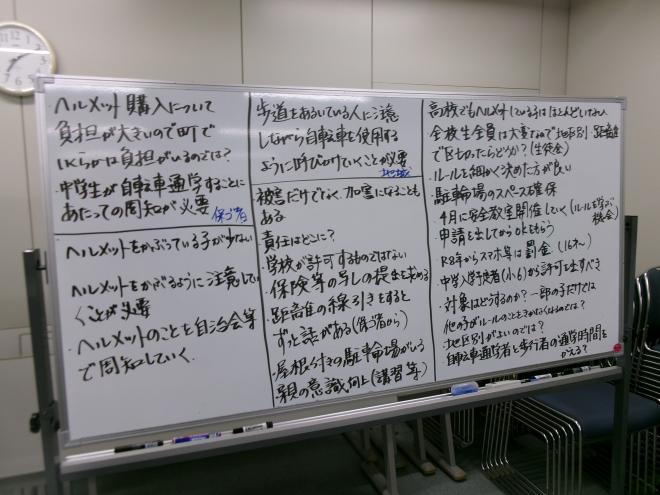 ・ヘルメット購入について
負担が大きいので町で
いくらかは負担がいるのでは?
・中学生が自転車通学することに
あたっての周知が必要 保ゴ者
・ヘルメットをかぶっている子が少ない
ヘルメットをかぶるように注意してい
くことが必要
・ヘルメットのことを自治会等
で周知していく.
歩道をあるいている人に注意
しながら自転車を使用する
ように呼びかけていくことが必要
地域
被害だけでなく.加害になることも
ある
・責任はどこに?
・学校が許可するものではない
・保険等の写しの提出を求める
・距離の線引きをすると
ずっと話がある(保ゴ者から)
・屋根付きの駐輪場がいる
・親の意識向上(講習等)
高校でもヘルメットしている子はほとんどいない
・全校生全員は大変なので地区別・距離
で区切ったらどうか?(生徒会)
・ルールを細かく決めた方が良い
・駐輪場のスペース確保
・4月に安全教室開催していく(ルールを学ぶ
機会)
・申請を出してからOKもらう
・R8年からスマホ等は罰金(16才〜)
・中学入学予定者(小6)から許可を出すべき
・対象はどうするのか?一部の子だけでは
他の子がルールのことをきかなくなるのでは?
・地区別がよいのでは?
・自転車通学者と歩行者の通学時間を
かえる?